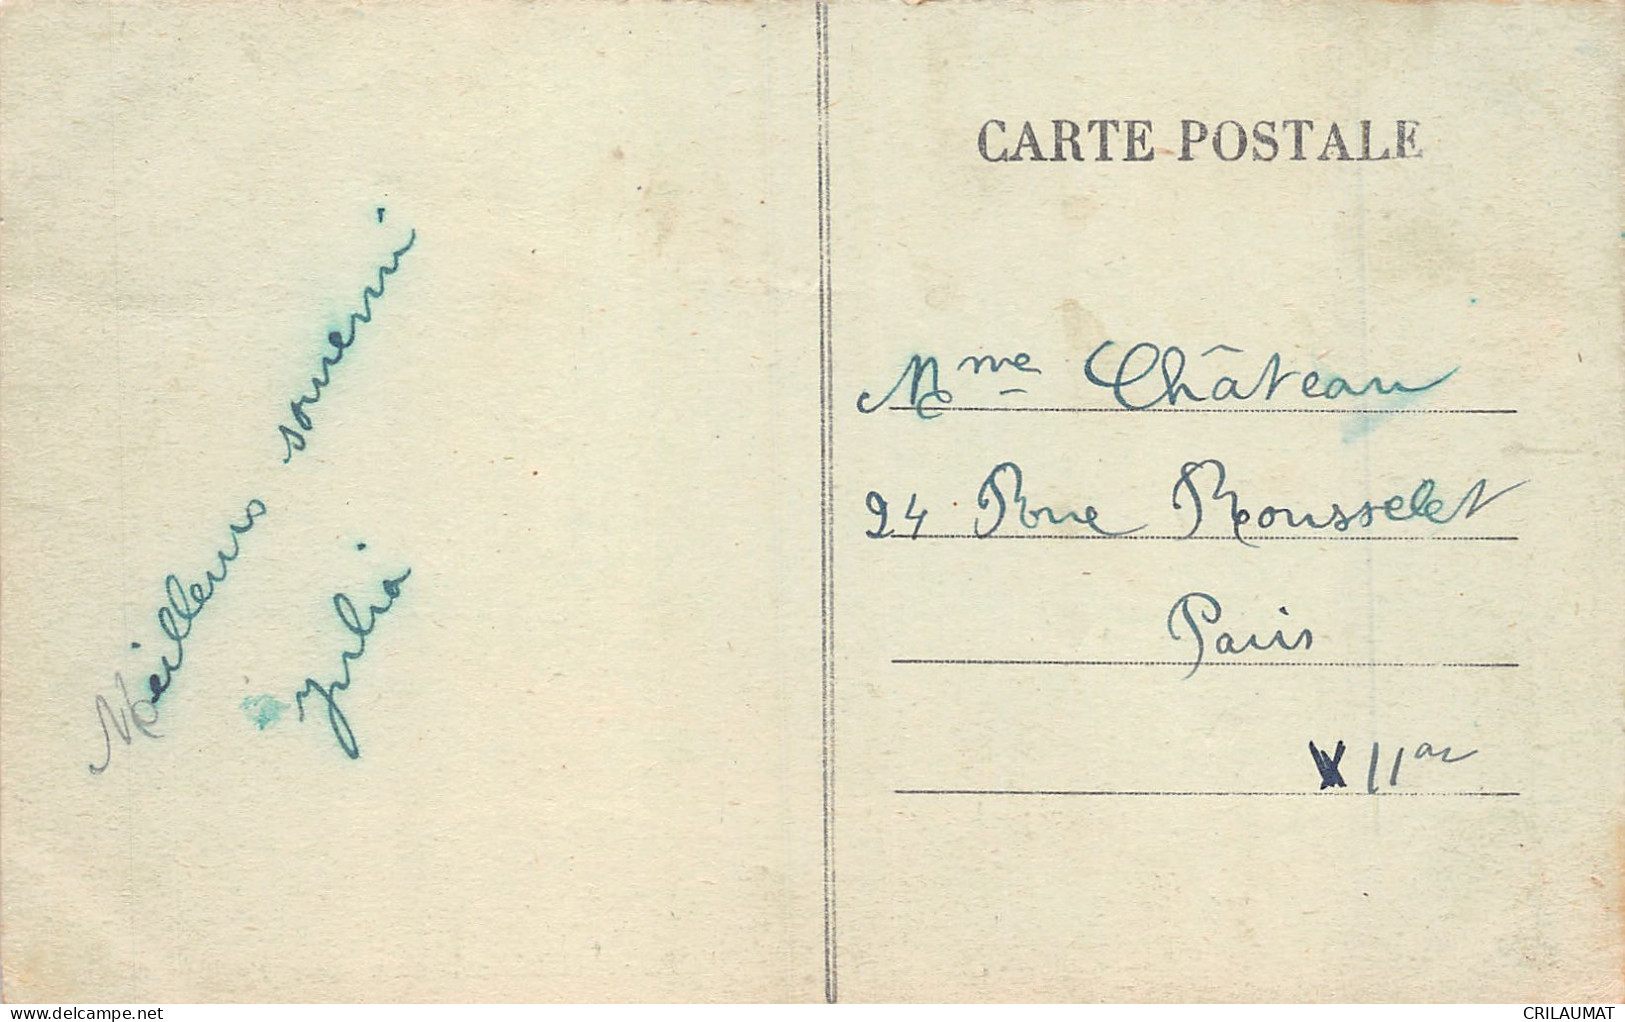 Meilleurs souvenir
Julia
CARTE POSTALE
Mme Château
24 Rue Rousselet
Paris
VIIar
www.delcampe.net
CRILAUMAT